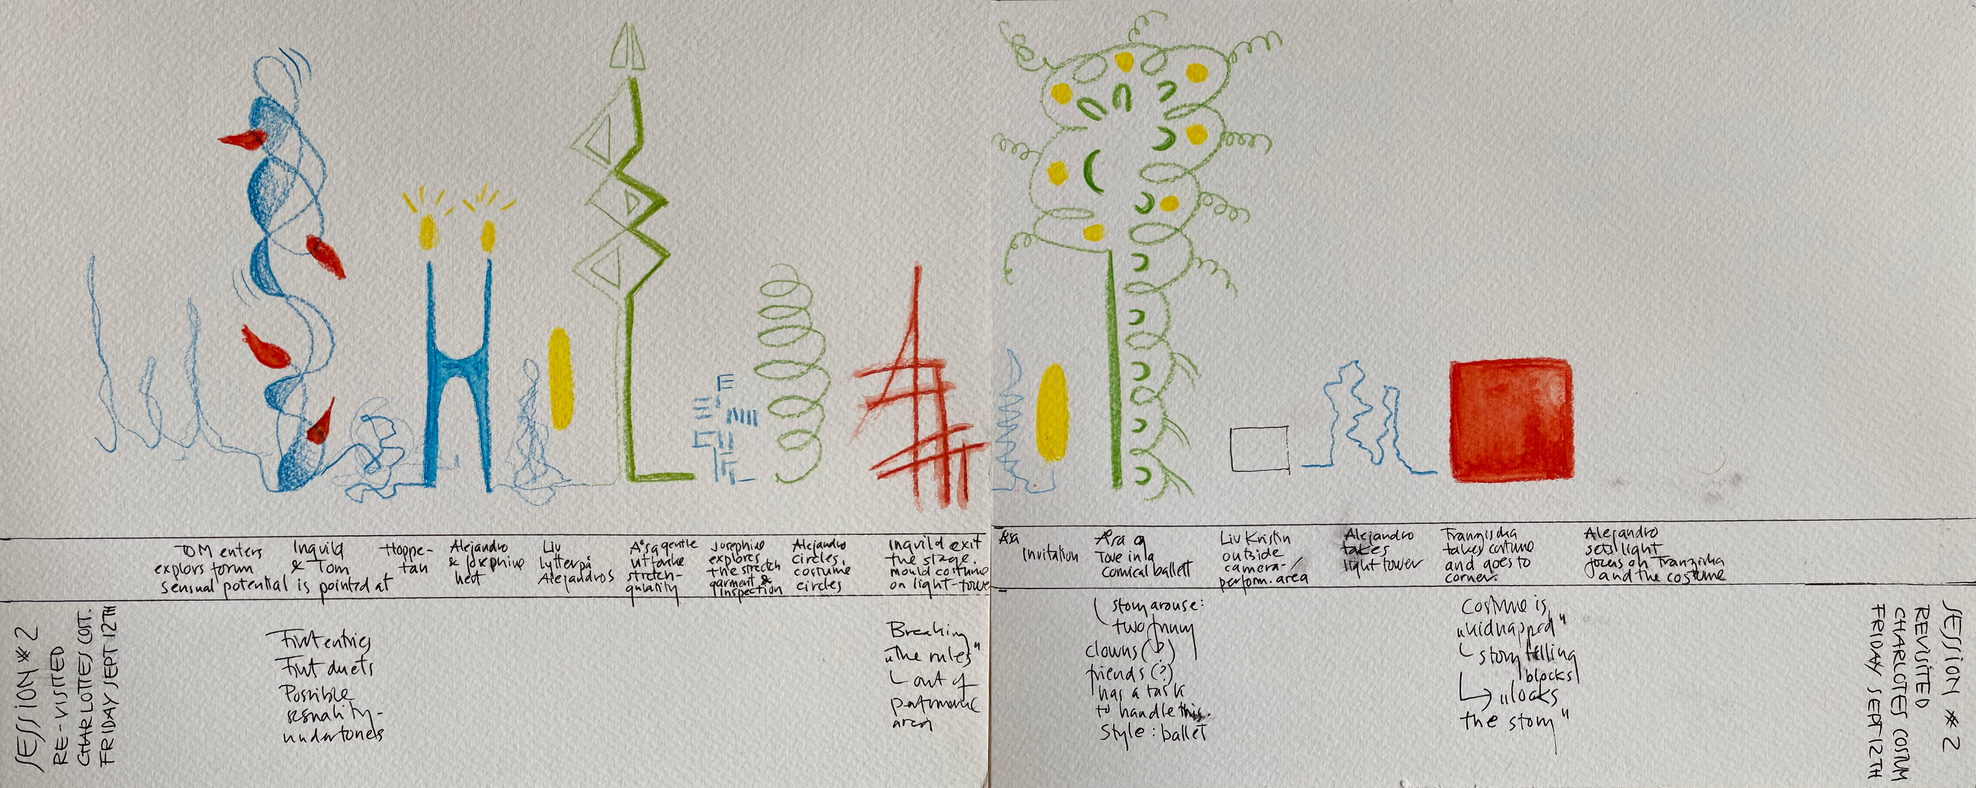 TOM enters
explors forum
sensual potential is pointed at
Ingvild
& Tom
Hoppe-
tau
Alejandro
& Josephine
heat
Liv
Lytter på
Alejandros
Åsa gentle
stretch-
quality
Josephine
explores
the stretch
garment &
inspection
Alejandro
circles,
costume
circles
Ingvild exit
the stage.
mould costume
on light-tower
Åsa
Invitation
Åsa og
Tove in a
comical ballett
Liv Kristin
outside
camera-/
perform. area
Alejandro
takes
light tower
Franziska
takes costume
and goes to
corner.
Alejandro
sets light
focus on Franziska
and the costume
SESSION #2
RE-VISITED
CHARLOTTES COST.
FRIDAY SEPT 12TH
First entries
First duets
Possible
sensuality-
undertones
Breaking
"the rules"
out of
performance
area
story arouse:
two funny
clowns (?)
friends (?)
has a task
to handle this.
Style: ballet
Costume is
"kidnapped"
story telling
blocks
"locks
the story"
SESSION #2
REVISITED
CHARLOTTES COSTUM
FRIDAY SEPT 12TH